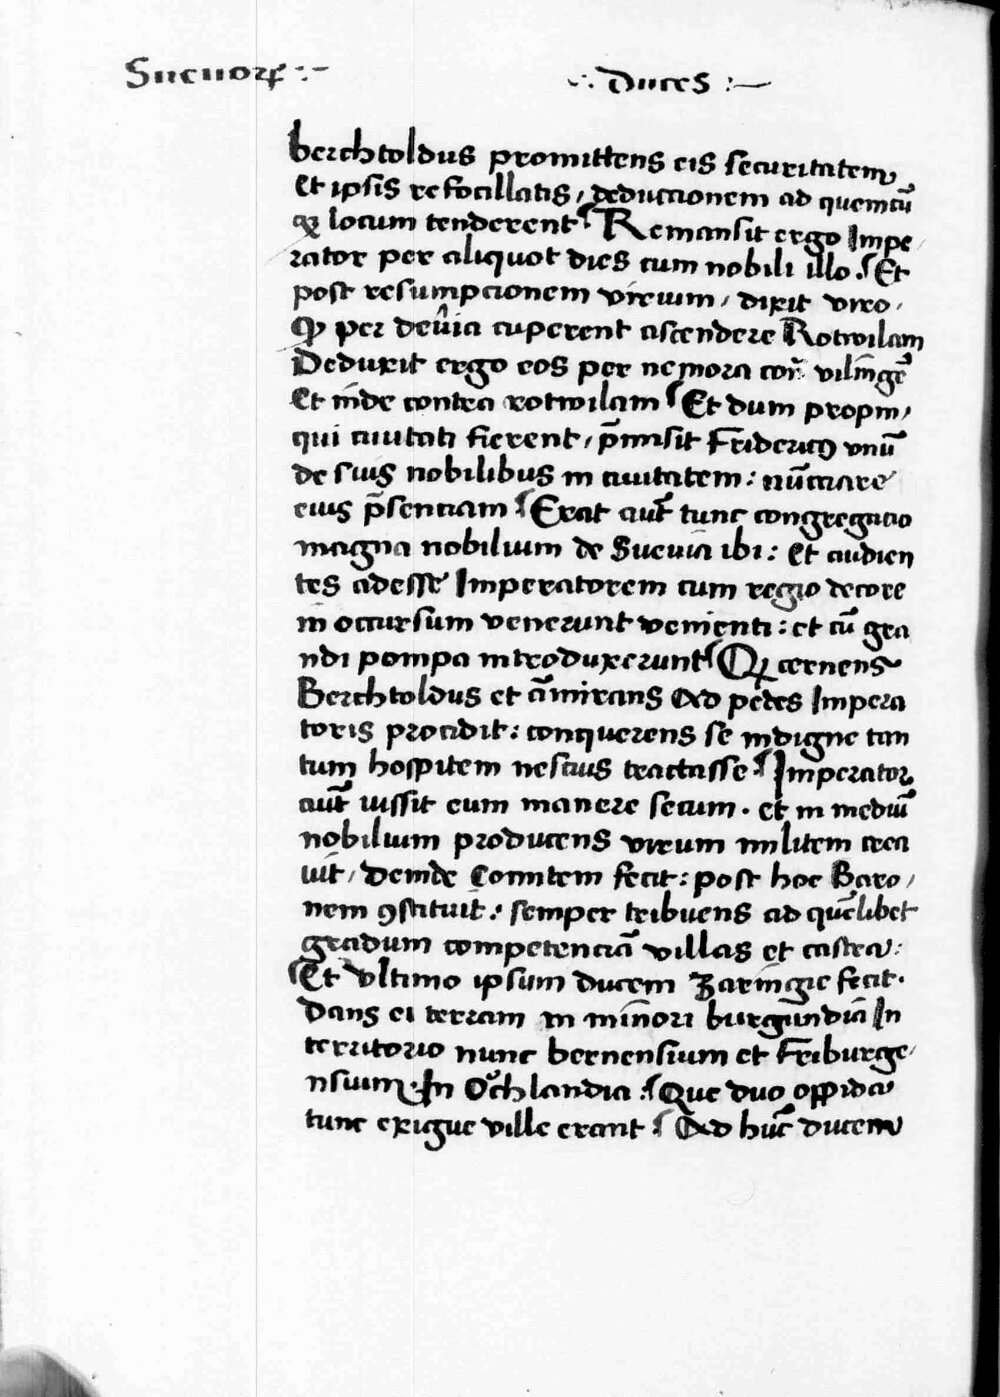 Sueuoꝝ :~
·: Duces :~
berchtoldus promittens eis securitatem
Et ipsis refocillatis, deductionem ad quemcū
qꝫ locum tenderent Remansit ergo Impe
rator per aliquot dies cum nobili illo. Et
post resumpcionem virium, dixit viro,
Qꝫ per deūia cuperent ascendere Rotwilam
Deduxit ergo eos per nemora cont̄ vilīngē
Et īnde contra rotwilam Et dum propin,
qui ciuitati fierent, p̄misit Fridericꝰ vnū
de suis nobilibus in ciuitatem: nūctiare
eius p̄senciam Erat aut̄ tunc congregatio
magna nobilium de Sueuia ibi: Et audien
tes adesse Imperatorem cum regio decore
in occursum venerunt venienti: et cū gra
ndi pompa introduxerunt Qꝫ cernens
Berchtoldus et āmirans Ad pedes Impera
toris procidit: conquerens se indigne tan
tum hospitem nescius tractasse Imperator
aut̄ iussit eum manere secum. et in mediū
nobilium producens virum militem crea
uit, deinde Comitem fecit: post hoc Baro,
nem ꝯstituit: semper tribuens ad quēlibet
gradum competenciā villas et castra:
Et vltimo ipsum ducem Zaringie fecit.
Dans ei terram in mīnori burgundiā In
territorio nunc bernensium et Friburge,
nsium. In Oͤchlandia. Que duo oppida
tunc exigue ville erant Ad hūc ducem